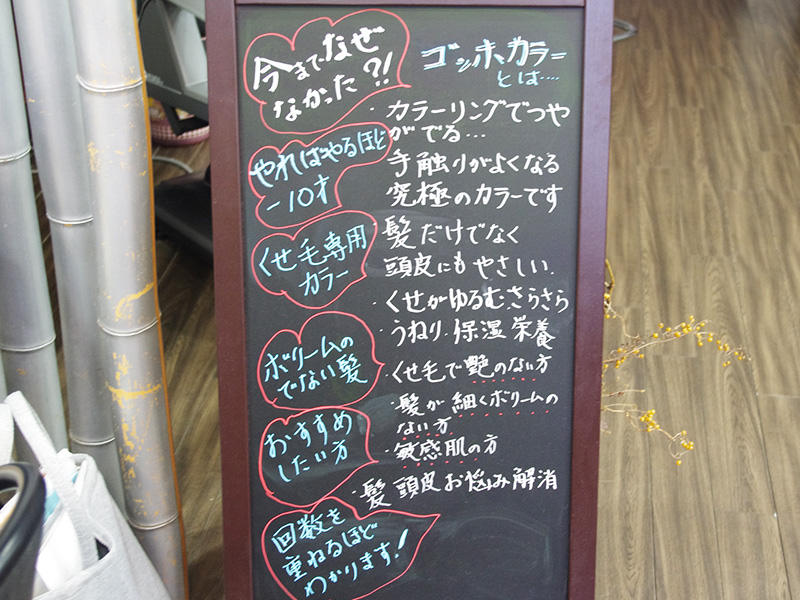 今までなぜ
なかった?!
ゴッホ、カラー
とは…
・カラーリングでつや
がでる…
手触りがよくなる
究極のカラーです
やればやるほど
-10才
・髪だけでなく
頭皮にもやさしい.
くせ毛専用
カラー
・くせがゆるむ、さらさら
うねり.保湿 栄養
ボリームの
でない髪
・くせ毛で艶のない方
・髪が細くボリームの
ない方
・敏感肌の方
おすすめ
したい方
・髪 頭皮お悩み解消
回数を
重ねるほど
わかります!